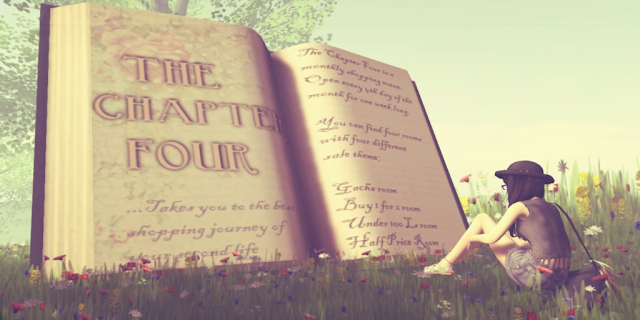 THE
CHAPTER
FOUR
...Takes you to the best
shopping journey of
your second life
The Chapter Four is a
monthly shopping event.
Open every 4th day of the
month for one week long.
You can find four rooms
with four different
sale theme:
Gacha room
Buy 1 for 2 room
Under 100 Ls room
Half Price Room